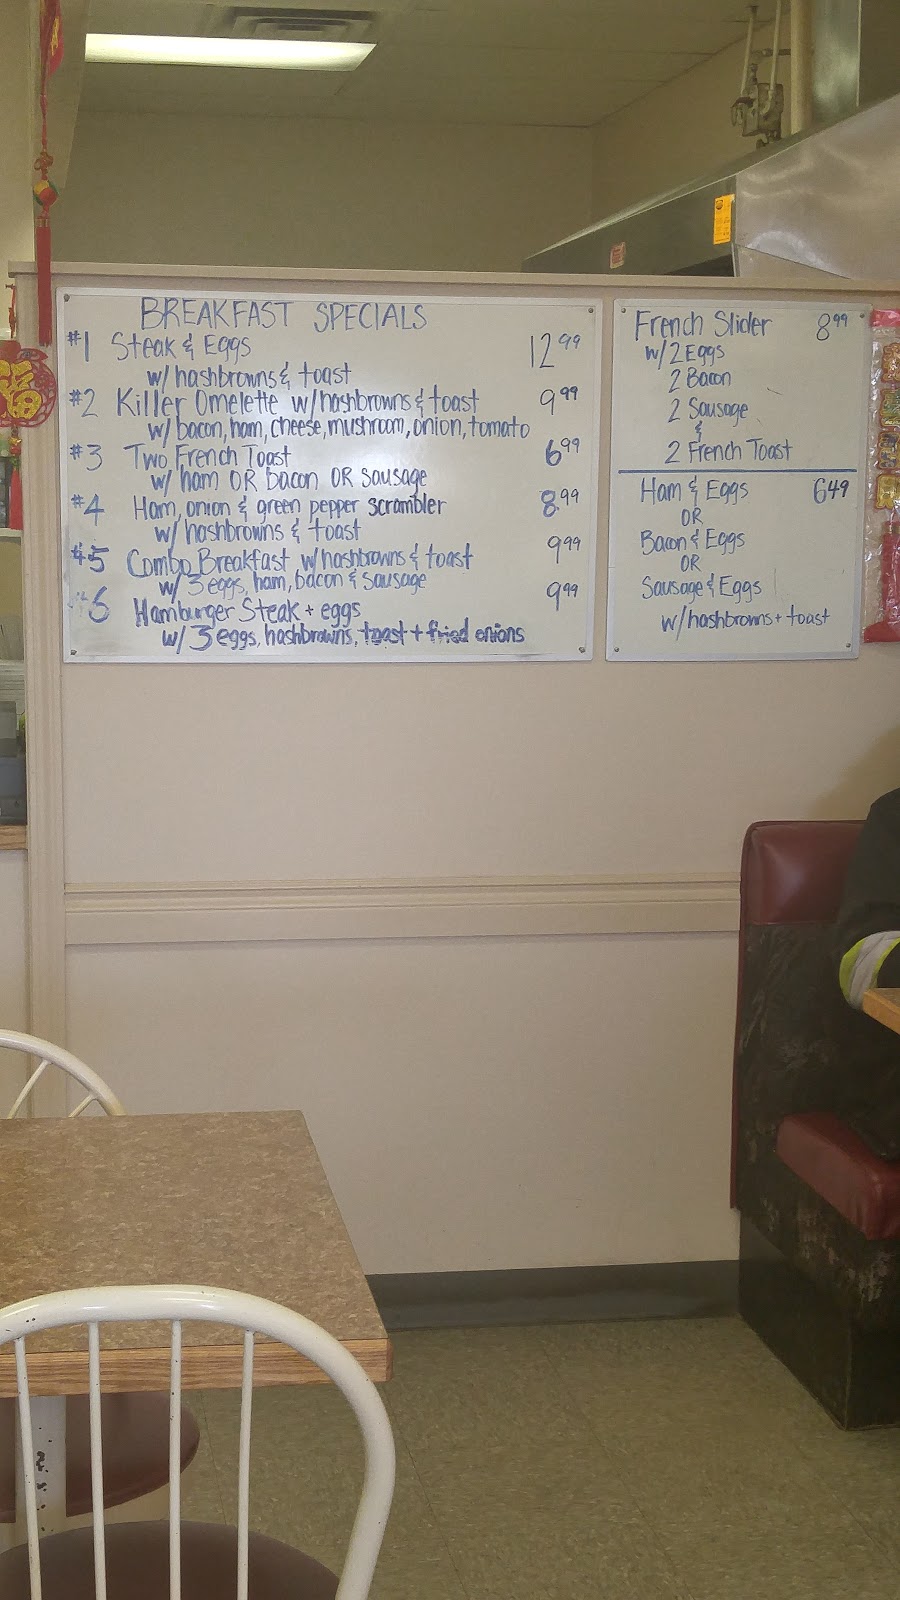 BREAKFAST SPECIALS
#1 Steak & Eggs 12.99
w/ hashbrowns & toast
#2 Killer Omelette w/hashbrowns & toast 9.99
w/ bacon, ham, cheese, mushroom, onion, tomato
#3 Two French Toast 6.99
w/ ham OR bacon OR sausage
#4 Ham, onion & green pepper scrambler 8.99
w/ hashbrowns & toast
#5 Combo Breakfast w/hashbrowns & toast 9.99
w/ 3 eggs, ham, bacon & sausage
#6 Hamburger Steak + eggs 9.99
w/ 3 eggs, hashbrowns, toast + fried onions
French Slider 8.99
w/ 2 Eggs
2 Bacon
2 Sausage
&
2 French Toast
Ham & Eggs 6.49
OR
Bacon & Eggs
OR
Sausage & Eggs
w/ hashbrowns + toast
福